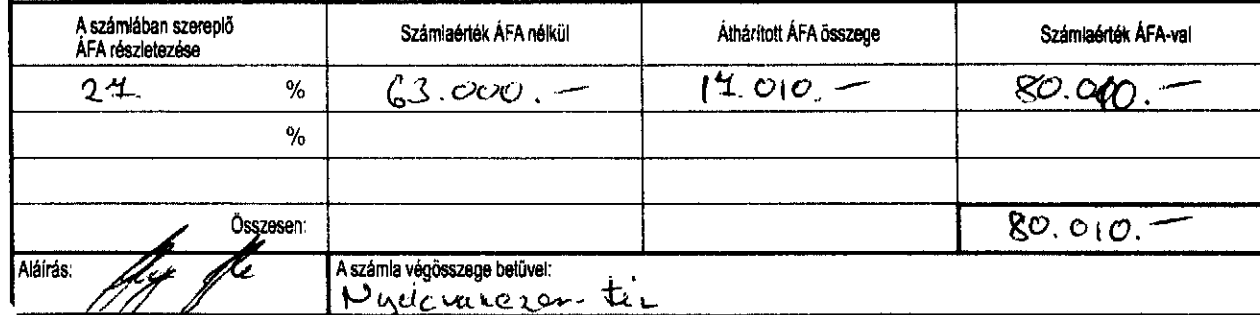 A számlában szereplő ÁFA részletezése Számlaérték ÁFA nélkül Áthárított ÁFA összege Számlaérték ÁFA-val
27. % 63.000.— 17.010.— 80.010.—
%
Összesen: 80.010.—
Aláírás: A számla végösszege betűvel:
Nyolcvanezer-tíz